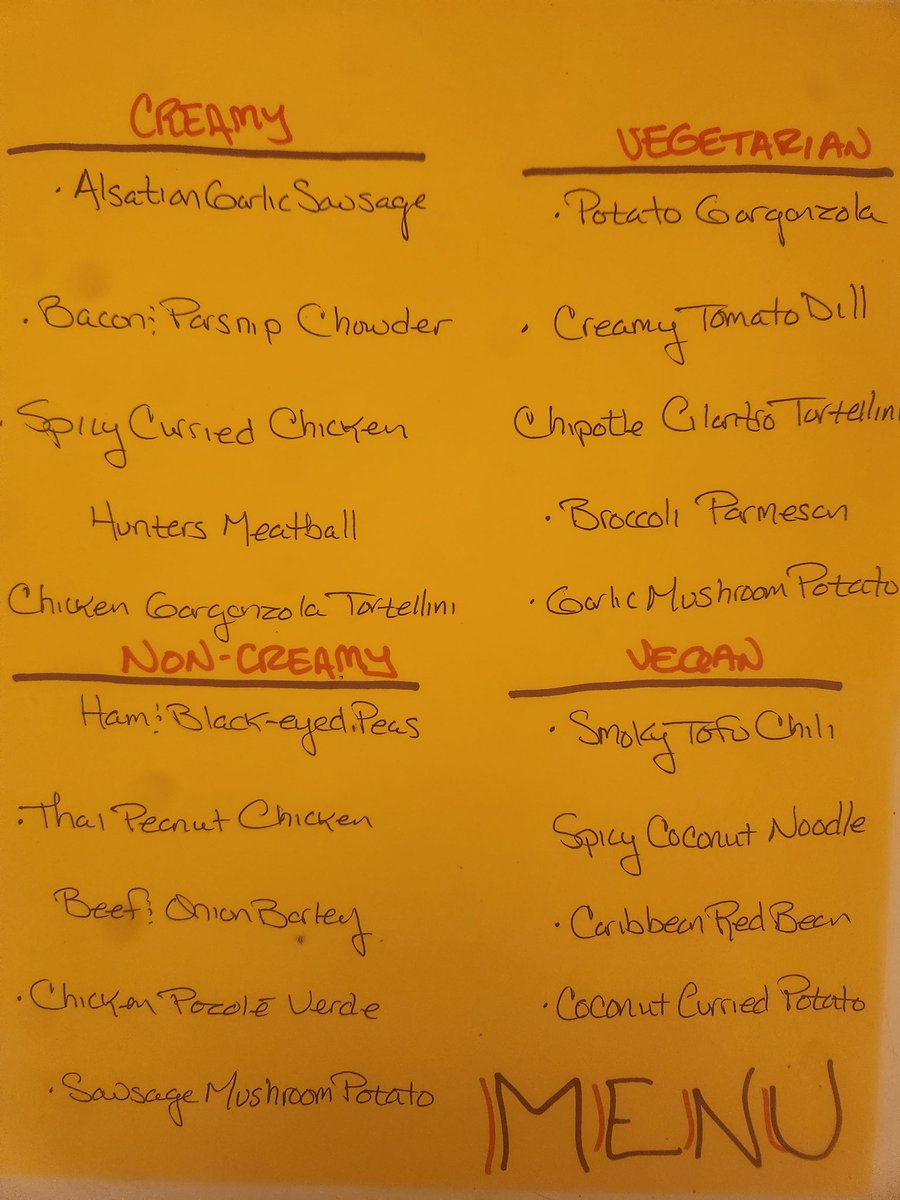 CREAMY
· Alsation Garlic Sausage
· Bacon & Parsnip Chowder
· Spicy Curried Chicken
Hunters Meatball
Chicken Gorgonzola Tortellini
NON-CREAMY
Ham & Black-eyed Peas
· Thai Peanut Chicken
Beef & Onion Barley
· Chicken Pozolé Verde
· Sausage Mushroom Potato
VEGETARIAN
· Potato Gorgonzola
· Creamy Tomato Dill
Chipotle Cilantro Tortellini
· Broccoli Parmesan
· Garlic Mushroom Potato
VEGAN
· Smoky Tofu Chili
Spicy Coconut Noodle
· Caribbean Red Bean
· Coconut Curried Potato
MENU